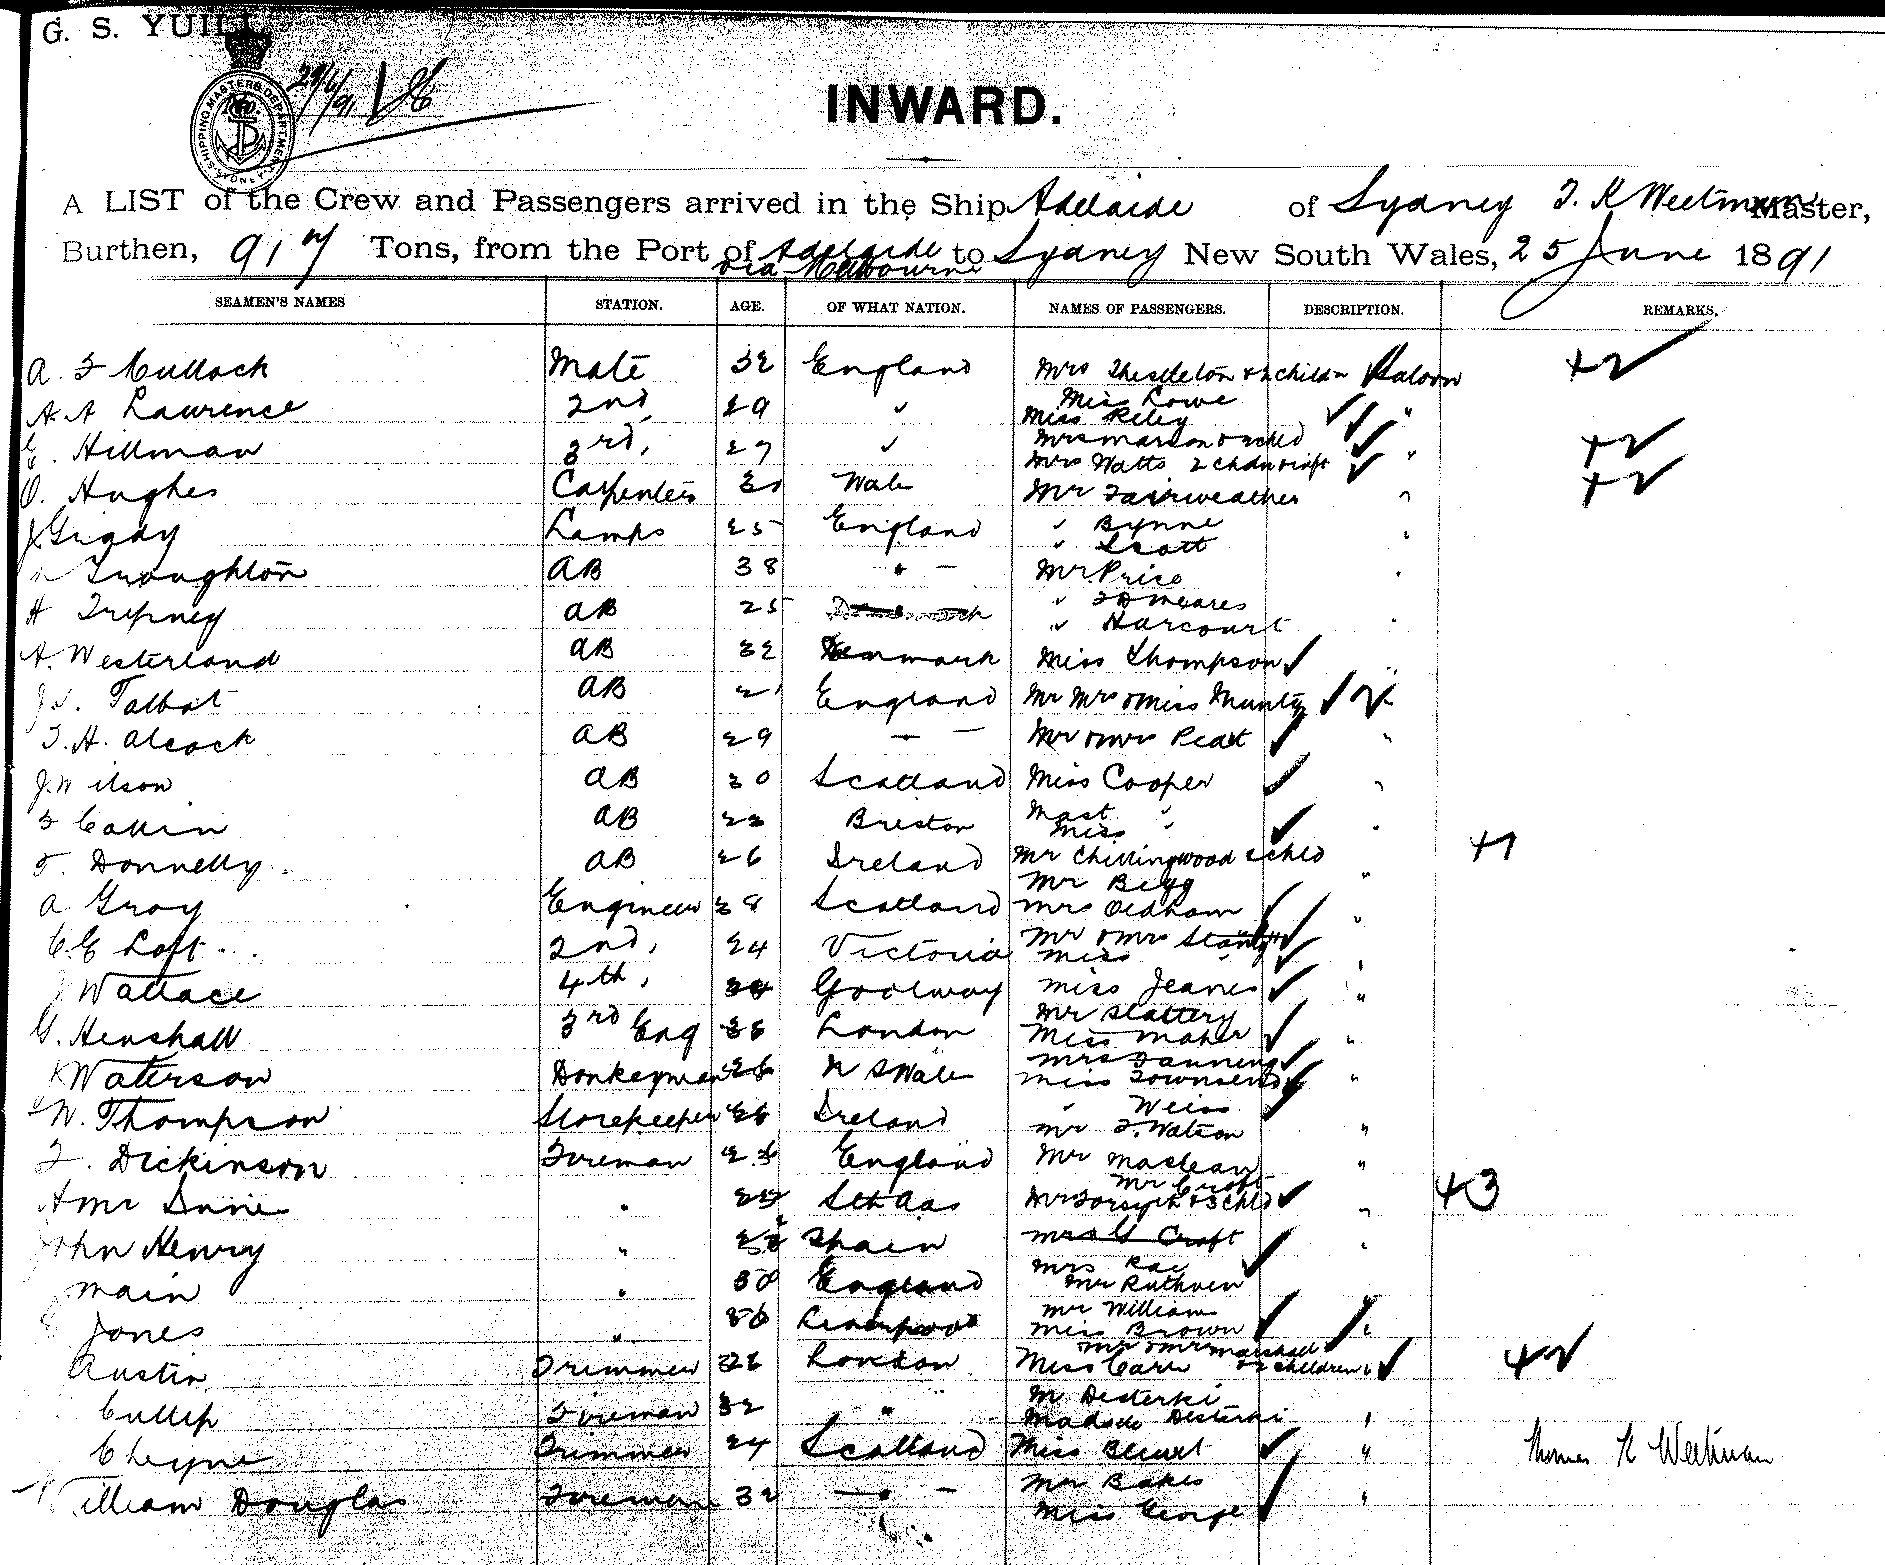 G. S. YUILL
SHIPPING MASTERS DEPARTMENT SYDNEY
29/6/91
INWARD.
A LIST of the Crew and Passengers arrived in the Ship Adelaide of Sydney T. K Weetman Master,
Burthen, 917 Tons, from the Port of Adelaide to Sydney New South Wales, 25 June 1891
via Melbourne
SEAMEN'S NAMES STATION. AGE. OF WHAT NATION. NAMES OF PASSENGERS. DESCRIPTION. REMARKS.
Mate 32 England Mrs & 2 childn Saloon +2
A A Lawrence 2nd, 29 " Miss Lowe "
Miss Riley
E. Hillman 3rd, 27 " Mrs Marson & 2 chld " +2
Mrs Watts 2 chdn & inft
O. Hughes Carpenter 30 Wales Mr Fairweather " +2
J Grady Lamps 25 England " Bynne "
" Scott
Troughton AB 38 " Mr Price "
H AB 25 " F D Meares
" Harcourt "
A. Westerland AB 32 Denmark Miss Thompson "
J. S. Talbot AB 21 England Mr Mrs & Miss Muntz
T. H. Alcock AB 29 " Mr & Mrs Peat "
J. Wilson AB 30 Scotland Miss Cooper "
AB Mast "
Miss "
T. Donnelly AB 26 Ireland Mr Chillingwood & chld +1
Mr Begg "
A Gray Engineer 38 Scotland Mrs Oldham "
C. E Loft 2nd, 24 Victoria Mr & Mrs
Miss " "
J Wattace 4th, Goolway Miss Jeanes "
G. Henshall 3rd Eng London Mr Slattery
Miss Maher "
K Waterson Donkeyman 26 N S Wales Mrs Fanning
Miss Townsend "
W. Thompson Storekeeper 26 Ireland " Weiss
Mr F. Watson "
F. Dickinson Fireman England Mr Maclean "
Mr Croft
" Sth Aus Mr Forsyth & 3 chld " +3
John Henry " Spain Mrs G Croft "
Mrs Rae
Main " 30 England Mr Ruthven
Jones " 36 Liverpool Mr William
Miss Brown "
Mr & Mrs Marshall
Austin Trimmer London Miss Carr & 2 children " +2
Cullip Fireman 32 " M Desterki
Desterki "
Cheyne Trimmer 24 Scotland Miss "
Thomas K Weetman
William Douglas Fireman 32 " Mr Bakes "
Miss George